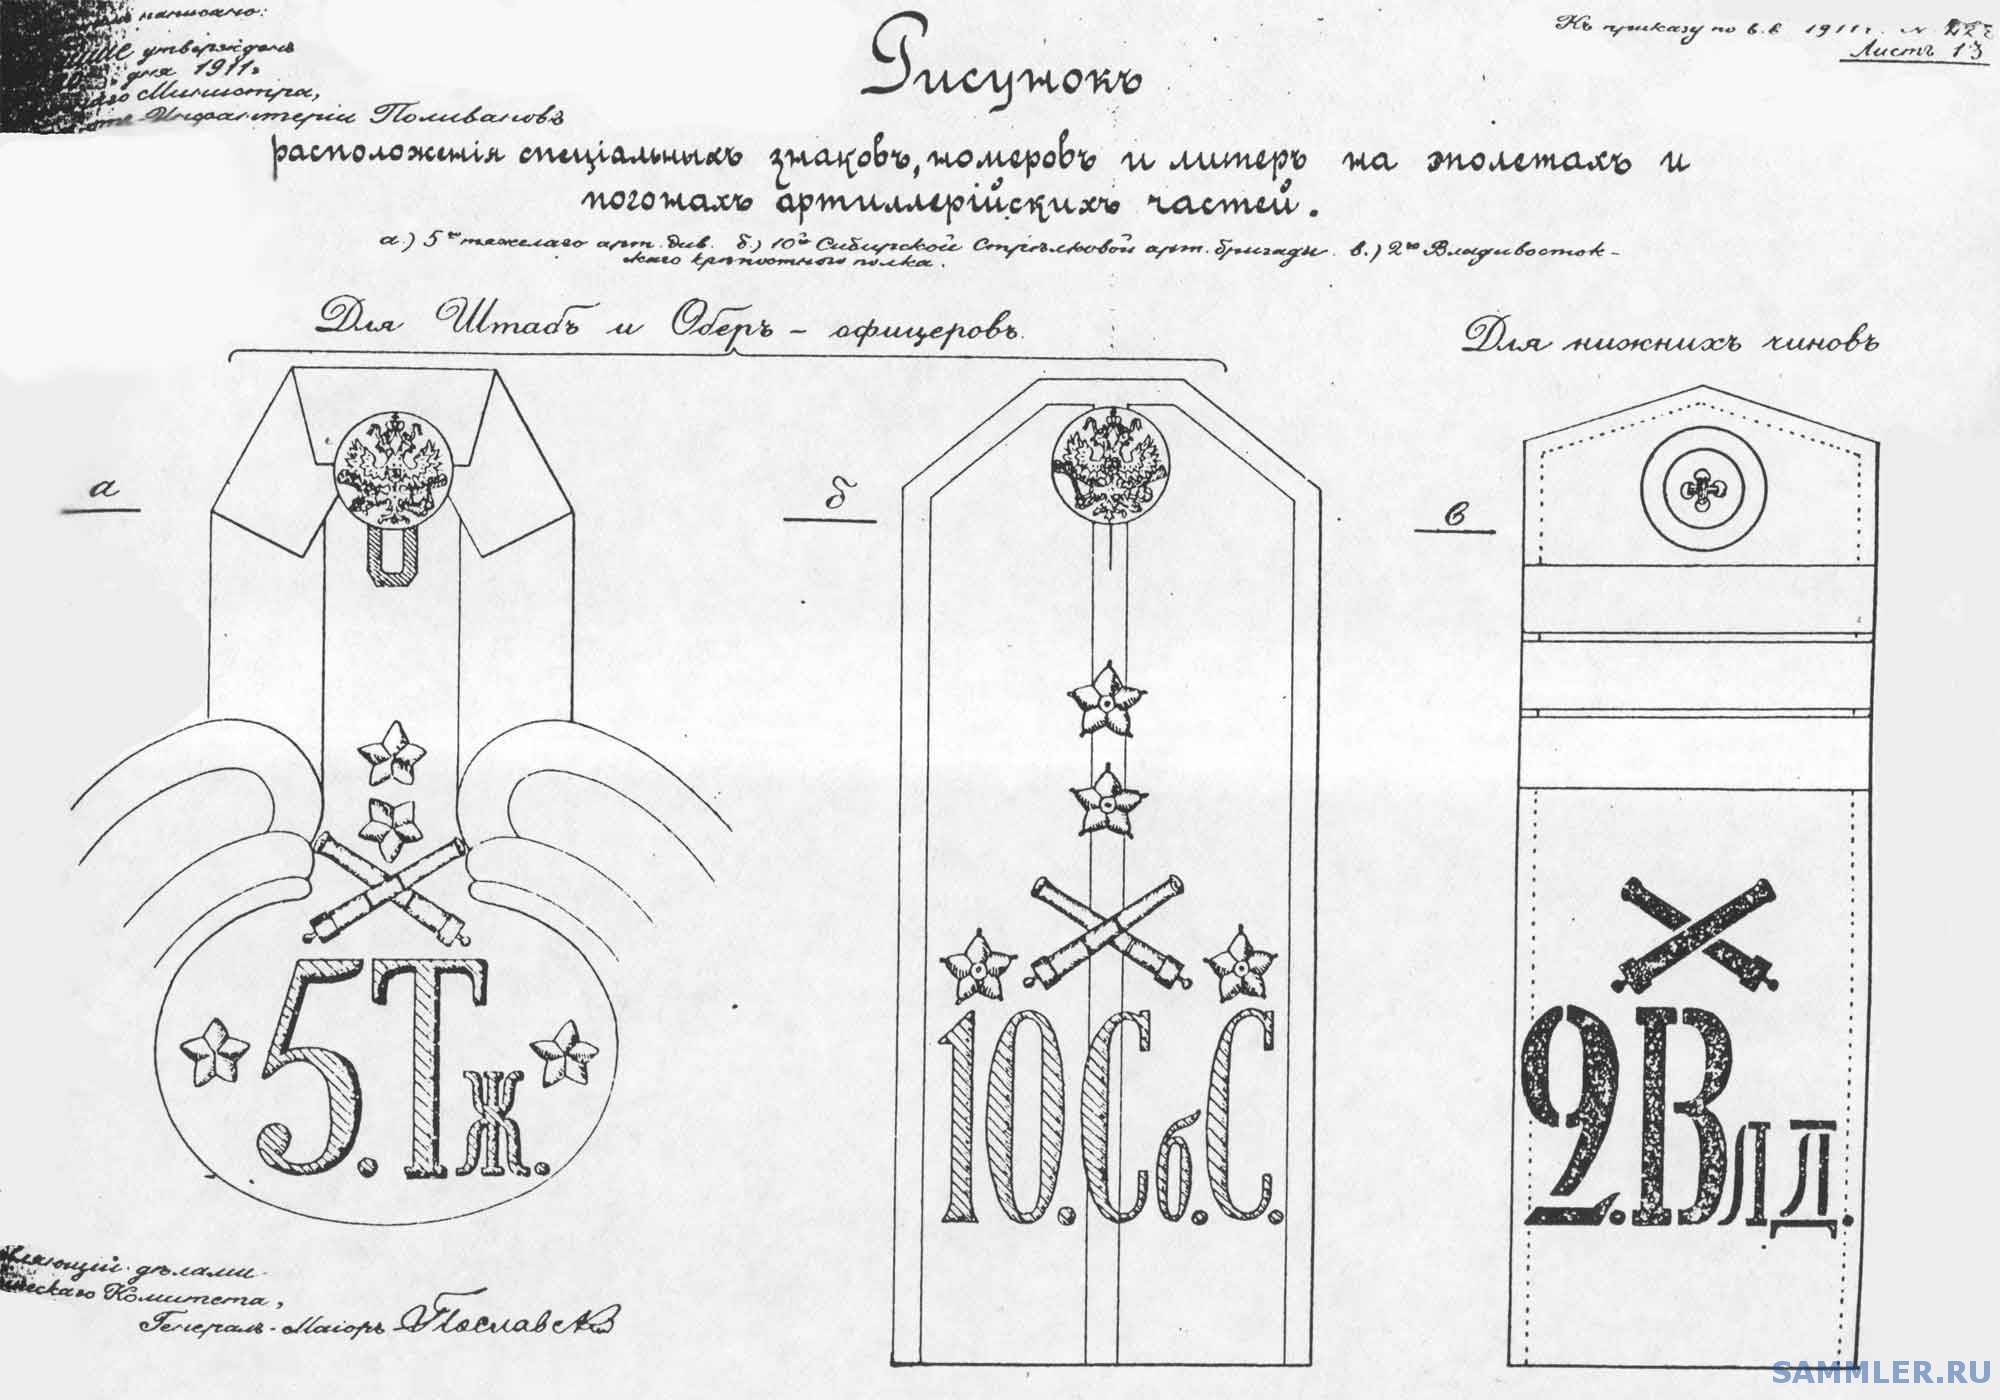 написано:
утвержденъ
дня 1911г.
Министра,
Инфантеріи Поливановъ
Къ приказу по в.в. 1911 г. №
Листъ 13
Рисунокъ
расположенія спеціальныхъ знаковъ, номеровъ и литеръ на эполетахъ и
погонахъ артиллерійскихъ частей.
а.) 5го тяжелаго арт. див. б.) 10ой Сибирской Стрѣлковой арт. бригады. в.) 2го Владивосток-
скаго крѣпостного полка.
Для Штабъ и Оберъ - офицеровъ.
Для нижнихъ чиновъ
а
б
в
5.Тж.
10.Сб.С.
2.Влд.
дѣлами
Комитета,
Генералъ-Маіоръ
SAMMLER.RU